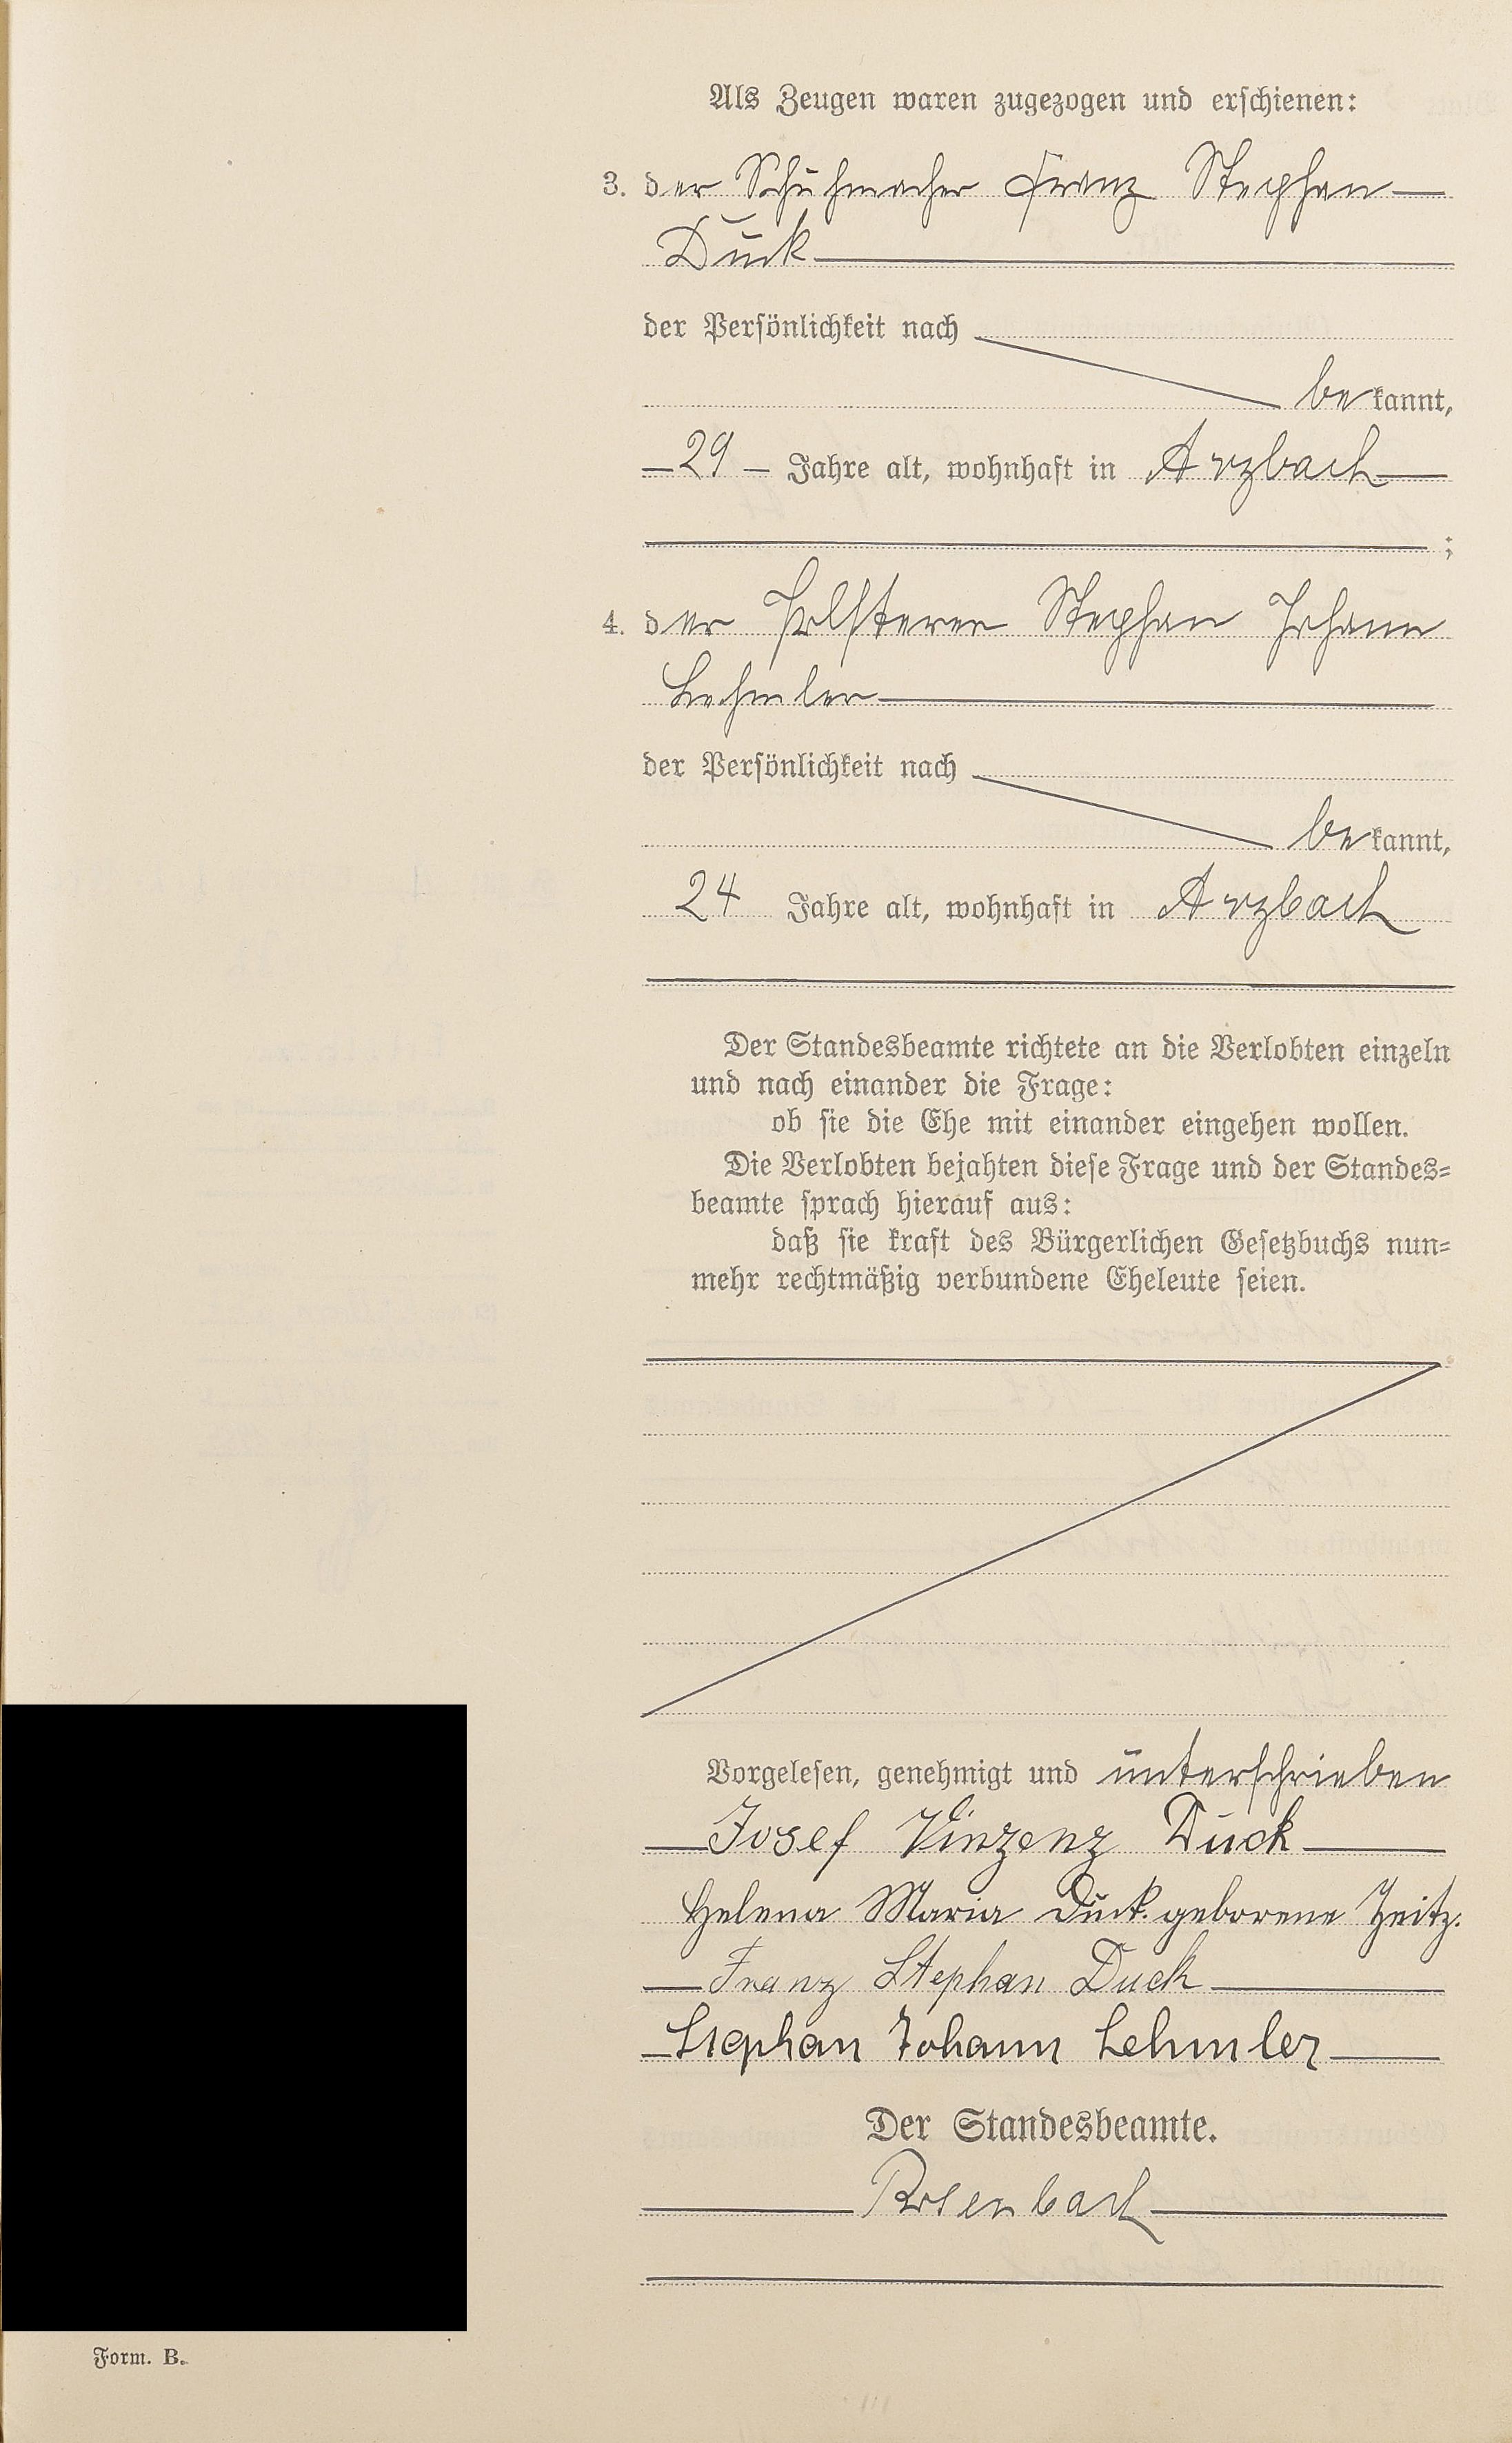 Als Zeugen waren zugezogen und erschienen:
3. der Schuhmacher Franz Stephan
Duck
der Persönlichkeit nach
bekannt,
29 Jahre alt, wohnhaft in Arzbach
;
4. der Polsterer Stephan Johann
Lehmler
der Persönlichkeit nach
bekannt,
24 Jahre alt, wohnhaft in Arzbach
Der Standesbeamte richtete an die Verlobten einzeln
und nach einander die Frage:
ob sie die Ehe mit einander eingehen wollen.
Die Verlobten bejahten diese Frage und der Standes=
beamte sprach hierauf aus:
daß sie kraft des Bürgerlichen Gesetzbuchs nun=
mehr rechtmäßig verbundene Eheleute seien.
Vorgelesen, genehmigt und unterschrieben
Josef Vinzenz Duck
Helena Maria Duck geborene Zeitz.
Franz Stephan Duck
Stephan Johann Lehmler
Der Standesbeamte.
Rosenbach
Form. B.